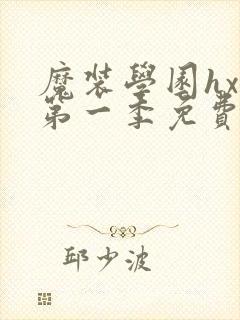 魔裝學園hx
第一季免費
邱少波